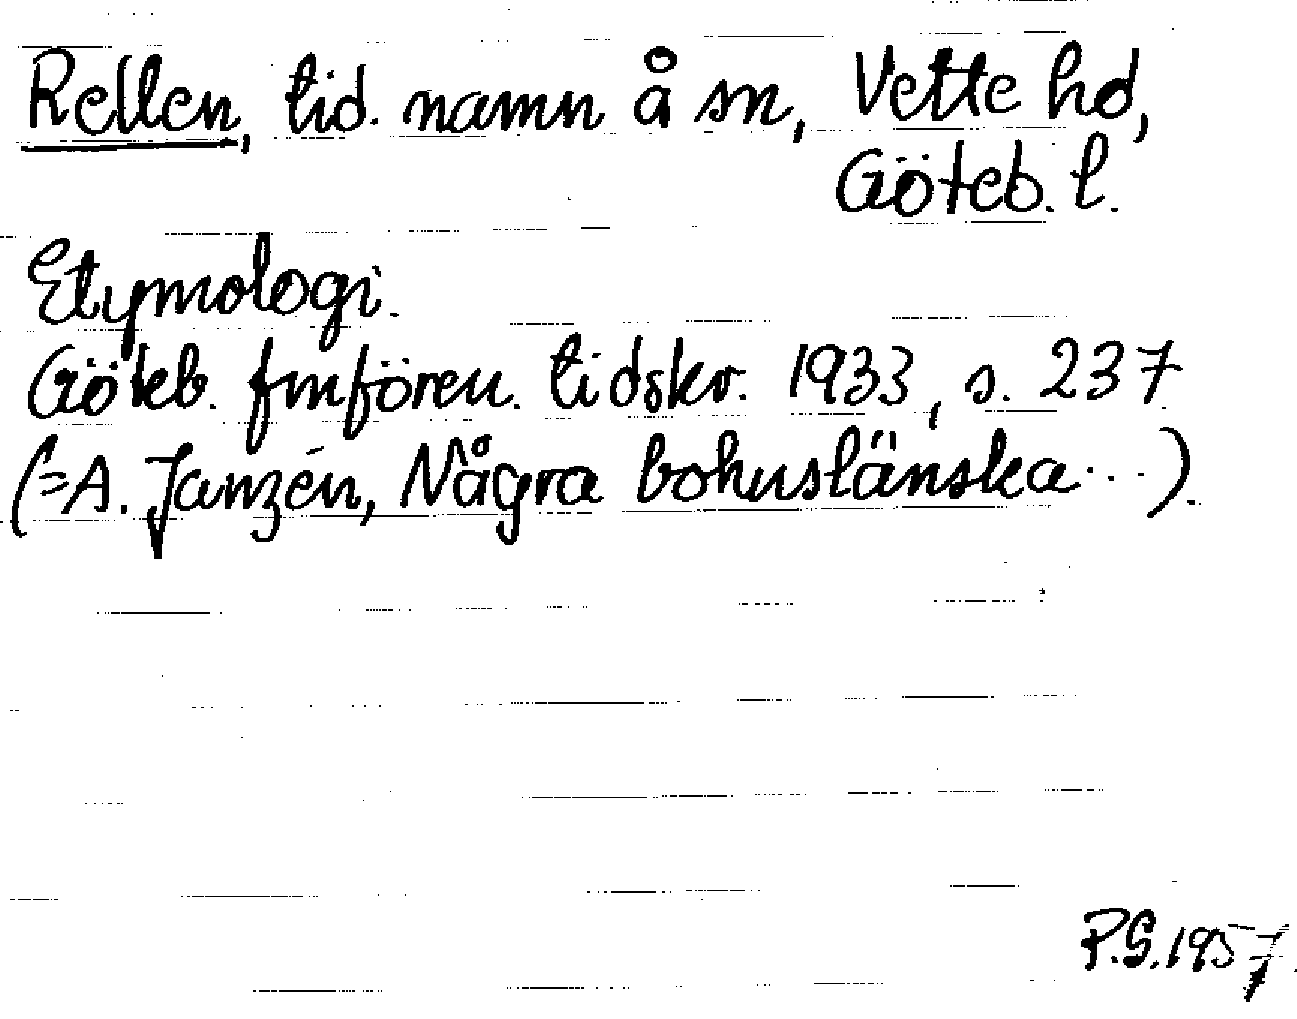 Rellen, tid. namn å sn, Vette hd,
Göteb. l.
Etymologi.
Göteb. fmfören. tidskr. 1933, s. 237
(=A. Janzén, Några bohuslänska...).
P.S. 1957.